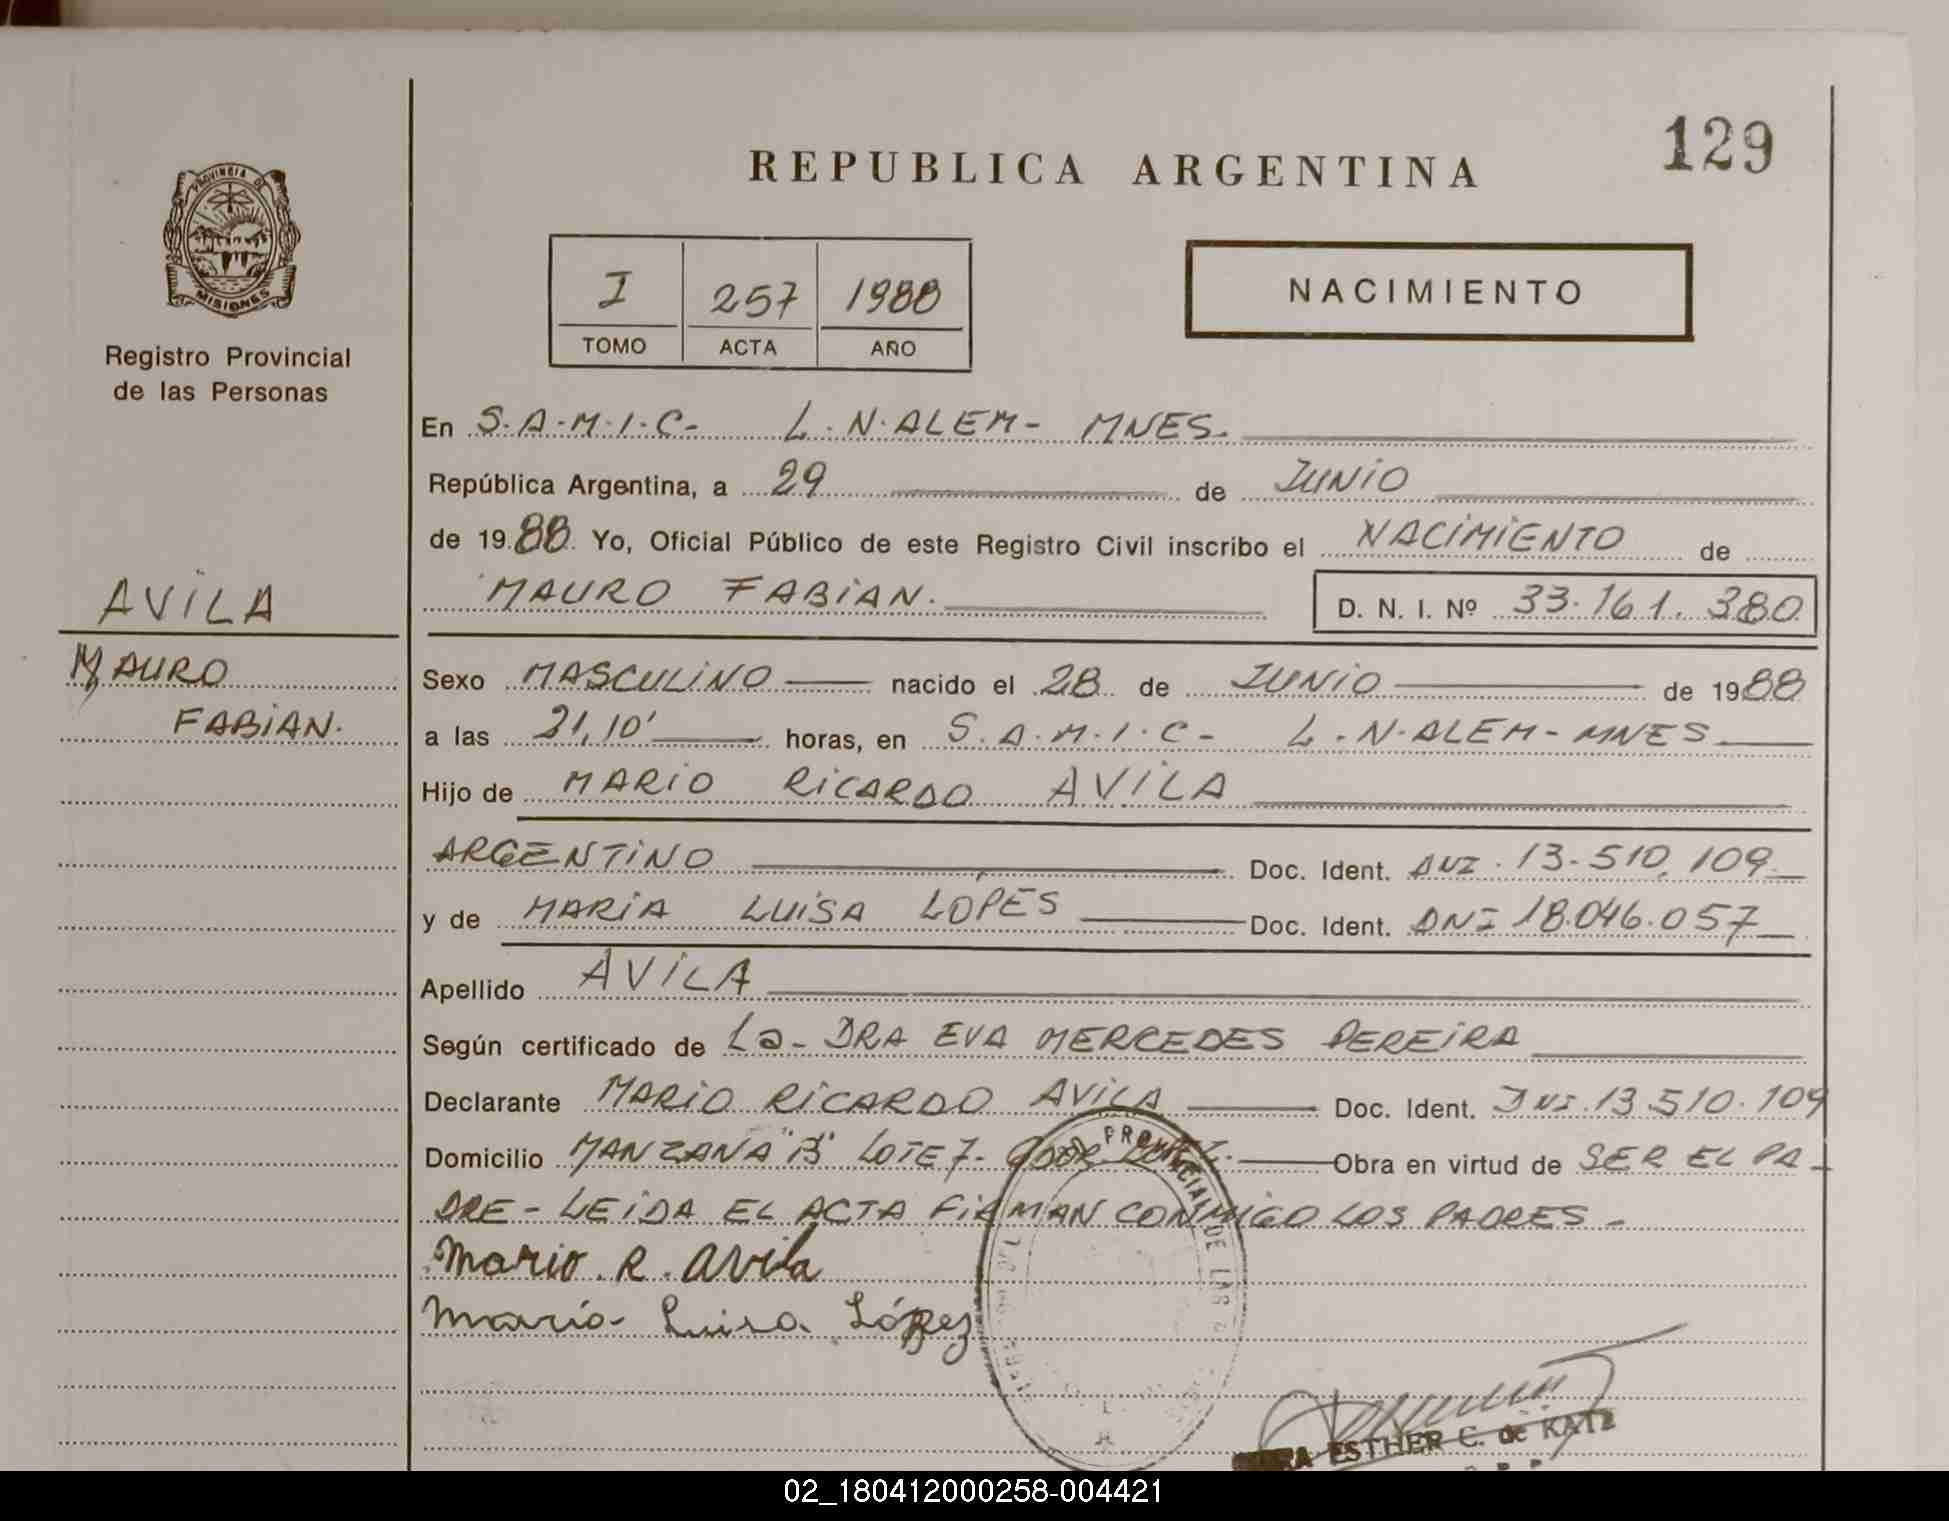 129
REPUBLICA ARGENTINA
PROVINCIA DE
MISIONES
Registro Provincial
de las Personas
I 257 1988
TOMO ACTA AÑO
NACIMIENTO
En S.A.M.I.C- L.N.ALEM- MNES.
República Argentina, a 29 de JUNIO
de 1988. Yo, Oficial Público de este Registro Civil inscribo el NACIMIENTO de
MAURO FABIAN. D. N. I. Nº 33.161.380
AVILA
MAURO
FABIAN.
Sexo MASCULINO nacido el 28 de JUNIO de 1988
a las 21,10' horas, en S.A.M.I.C- L.N.ALEM-MNES
Hijo de MARIO RICARDO AVILA
ARGENTINO Doc. Ident. DNI.13-510.109
y de MARIA LUISA LÓPES Doc. Ident. DNI 18.046.057
Apellido AVILA
Según certificado de La- DRA EVA MERCEDES PEREIRA
Declarante MARIO RICARDO AVILA Doc. Ident. DNI.13.510.109
Domicilio MANZANA "B" LOTE 7- Obra en virtud de SER EL PA-
DRE - LEIDA EL ACTA FIRMAN CONMIGO LOS PADRES -
Mario R. Avila
María Luisa López
PROVINCIAL DE LAS
ESTHER C. de KATZ
02_180412000258-004421